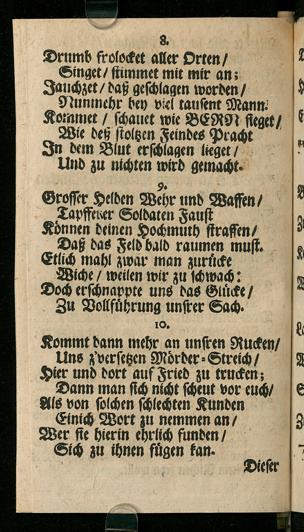 8.
Drumb frolocket aller Orten/
Singet/ stimmet mit mir an;
Jauchzet/ daß geschlagen worden/
Nunmehr bey viel tausent Mann.
Kommet/ schauet wie BERN sieget/
Wie deß stoltzen Feindes Pracht
In dem Blut erschlagen lieget/
Und zu nichten wird gemacht.
9.
Grosser Helden Wehr und Waffen/
Tapfferer Soldaten Faust
Können deinen Hochmuth straffen/
Daß das Feld bald raumen must.
Etlich mahl zwar man zurücke
Wiche/ weilen wir zu schwach:
Doch erschnappte uns das Glücke/
Zu Vollführung unsrer Sach.
10.
Kommt dann mehr an unsren Rucken/
Uns z'versetzen Mörder-Streich/
Hier und dort auf Fried zu trucken;
Dann man sich nicht scheut vor euch/
Als von solchen schlechten Kunden
Einich Wort zu nemmen an/
Wer sie hierin ehrlich funden/
Sich zu ihnen fügen kan.
Dieser